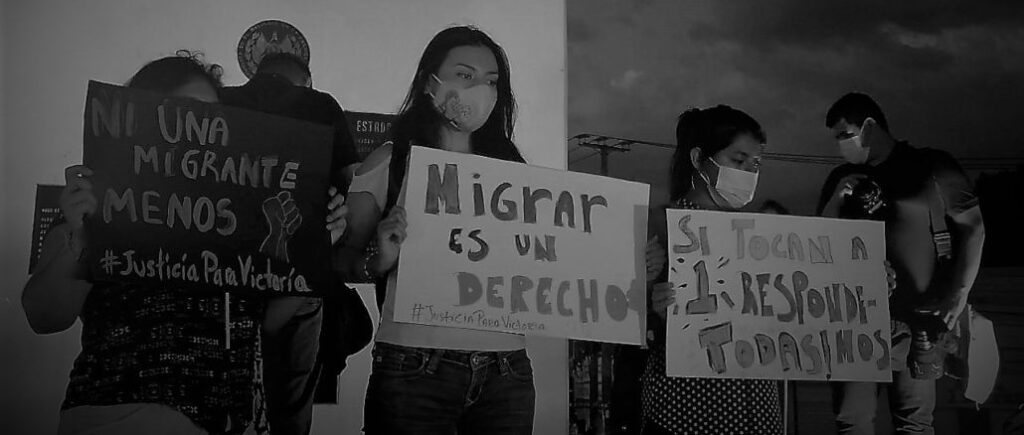 NI UNA
MIGRANTE
MENOS
#JusticiaParaVictoria
ESTADO
MIGRAR
ES UN
DERECHO
#JusticiaParaVictoria
SI TOCAN A
1 RESPONDE-
TODASIMOS